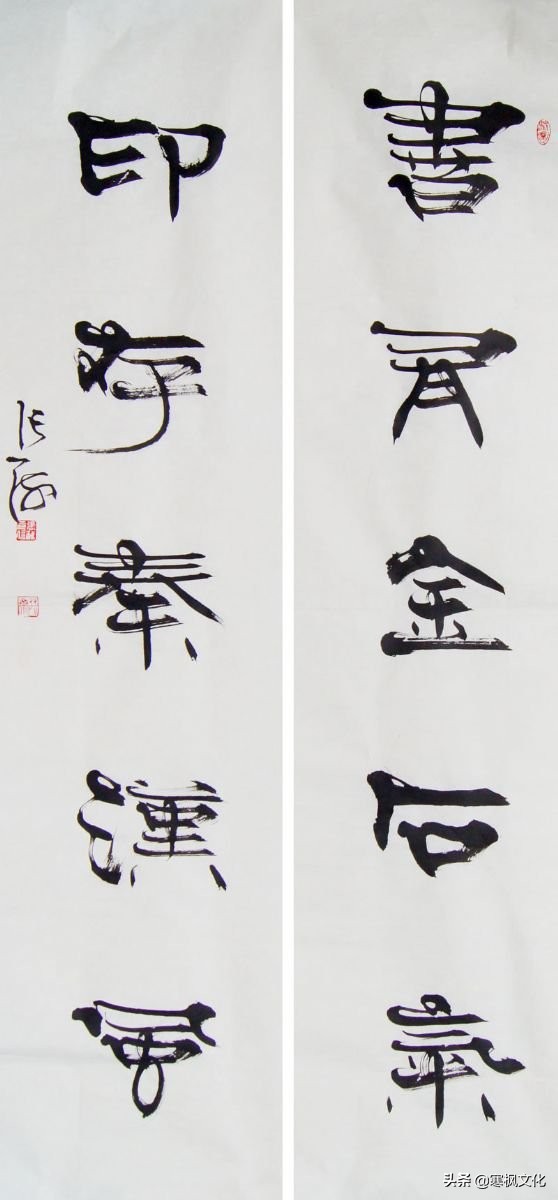 書有金石氣
印存秦漢風
头条 @寒枫文化